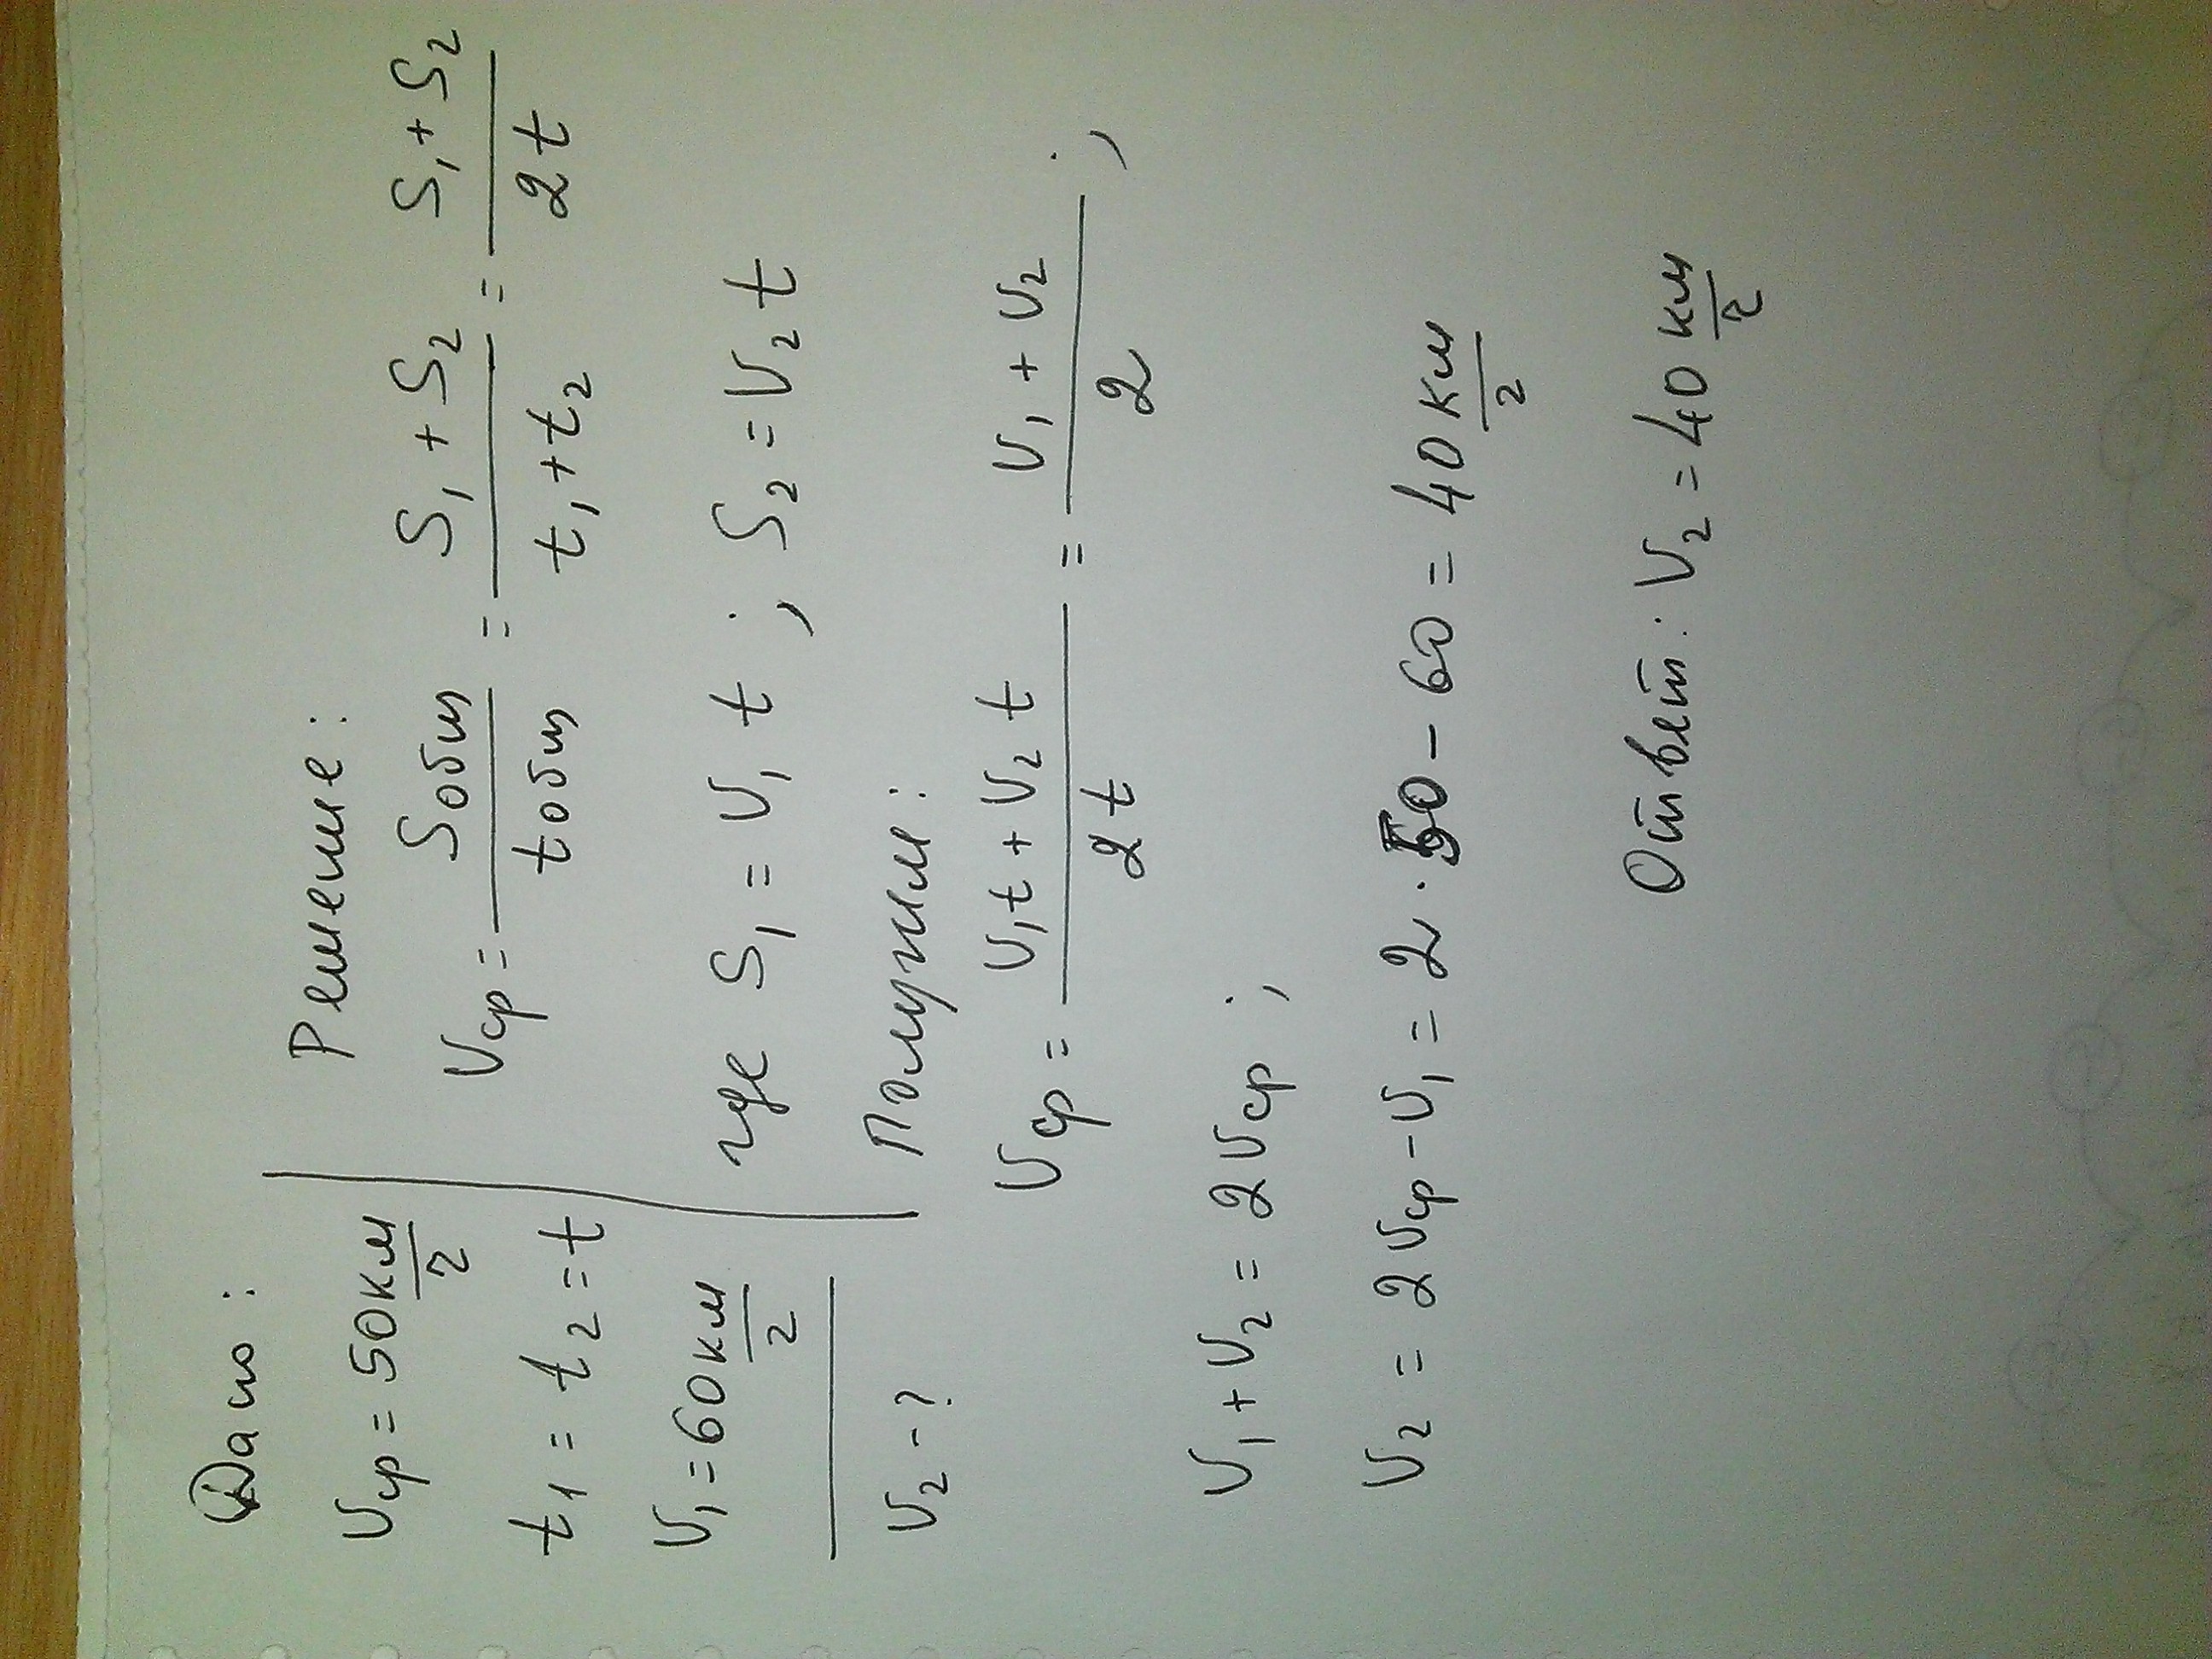 Дано:
Vср = 50 км/ч
t1 = t2 = t
V1 = 60 км/ч
V2 - ?
Решение:
Vср = Sобщ/tобщ = (S1 + S2)/(t1 + t2) = (S1 + S2)/2t
где S1 = V1 t ; S2 = V2 t
Получим:
Vср = (V1 t + V2 t)/2t = (V1 + V2)/2 ;
V1 + V2 = 2Vср ;
V2 = 2Vср - V1 = 2 · 50 - 60 = 40 км/ч
Ответ: V2 = 40 км/ч